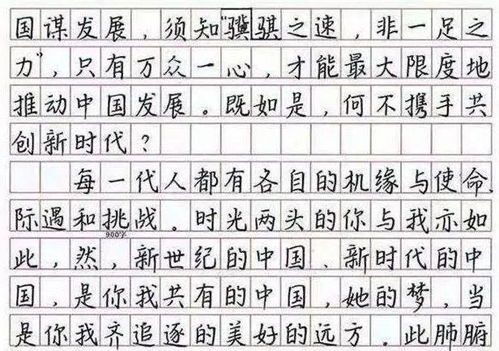 国谋发展，须知“骥骐之速，非一足之
力”，只有万众一心，才能最大限度地
推动中国发展。既如是，何不携手共
创新时代？
每一代人都有各自的机缘与使命
际遇和挑战。时光两头的你与我亦如
900字
此，然，新世纪的中国、新时代的中
国，是你我共有的中国，她的梦，当
是你我齐追逐的美好的远方。此肺腑